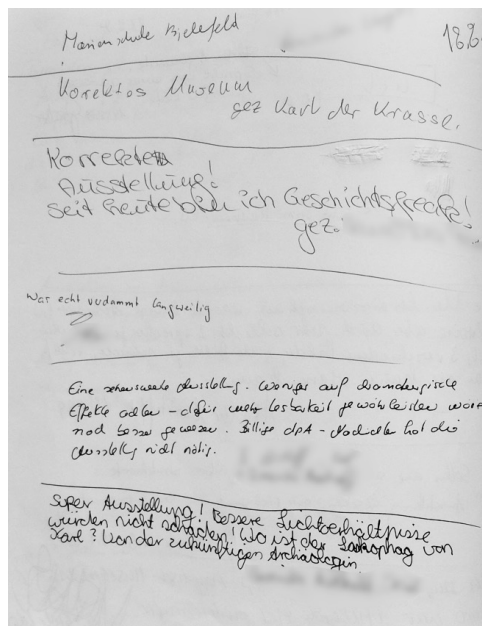 Marienschule Bielefeld
18.8
Korektes Museum
gez Karl der Krasse.
Korrekte
Ausstellung!
seit heute bin ich Geschichtsfreak!
gez.
War echt verdammt langweilig
Eine sehenswerte Ausstellung. Weniger auf dramaturgische
Effekte oder – dafür mehr Lesbarkeit gewährleisten wäre
noch besser gewesen. Billige dpA – Nachichten hat die
Ausstellung nicht nötig.
Super Ausstellung! Bessere Lichtverhältnisse
würden nicht schaden! Wo ist der Sarkophag von
Karl? Von der zukünftigen Archäologin